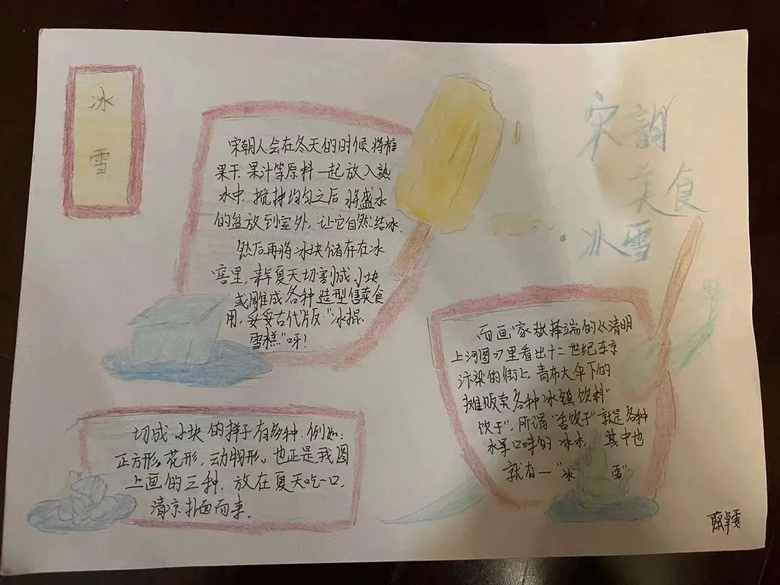 冰
雪
宋韵
美食
·冰雪
宋朝人会在冬天的时候将桂
果干、果汁等原料一起放入熟
水中,搅拌均匀之后将盛水
的盆放到室外,让它自然结冰,
然后再将冰块储存在冰
窖里,来年夏天切割成小块
或雕成各种造型售卖食
用,妥妥古代版“冰棍、
雪糕”呀!
切成小块的样子有多种.例如:
正方形,花形,动物形,也正是我图
上画的三种,放在夏天吃一口,
清凉扑面而来.
而画家张择端的《清明
上河图》里看出十二世纪东京
汴梁的街上,青布大伞下的
摊贩卖各种冰镇饮料“
饮子”,所谓“香饮子”就是各种
水果口味的冰水,其中也
就有一“冰 雪”